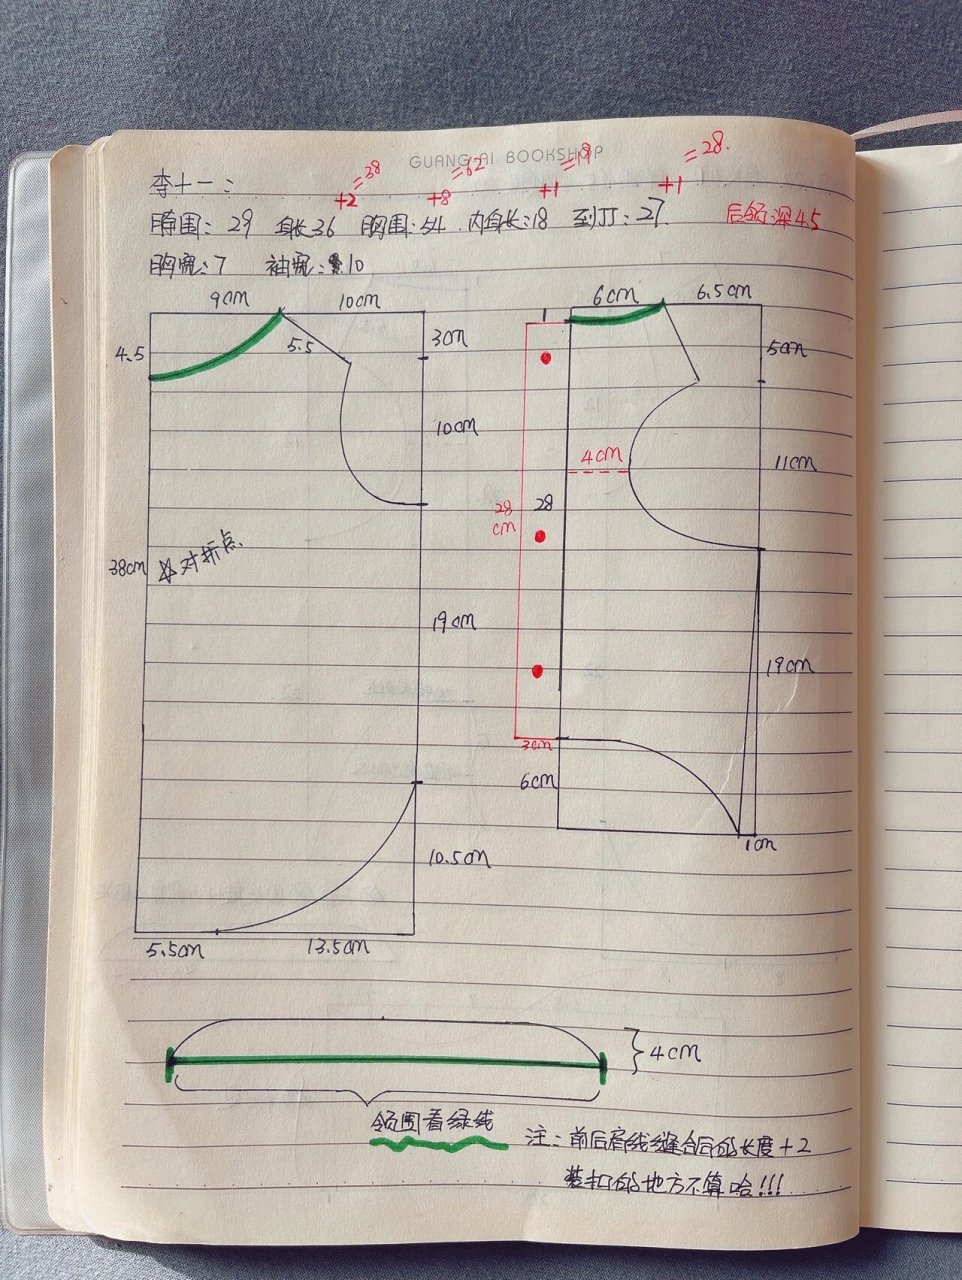 GUANG AI BOOKSHOP
李十一:
+2=38 +8=62 +1=19 +1=28.
脖围:29 身长36 胸围:54 内身长:18 至JJ:27 后领深4.5
胸宽:7 袖宽:10
9cm 10cm
4.5
5.5
3cm
10cm
38cm
☆对折点
19cm
10.5cm
5.5cm 13.5cm
1 6cm 6.5cm
5cm
4cm
11cm
28cm
28
19cm
3cm
6cm
1cm
4cm
领围看绿线
注:前后肩线缝合后的长度+2
装扣的地方不算哈!!!